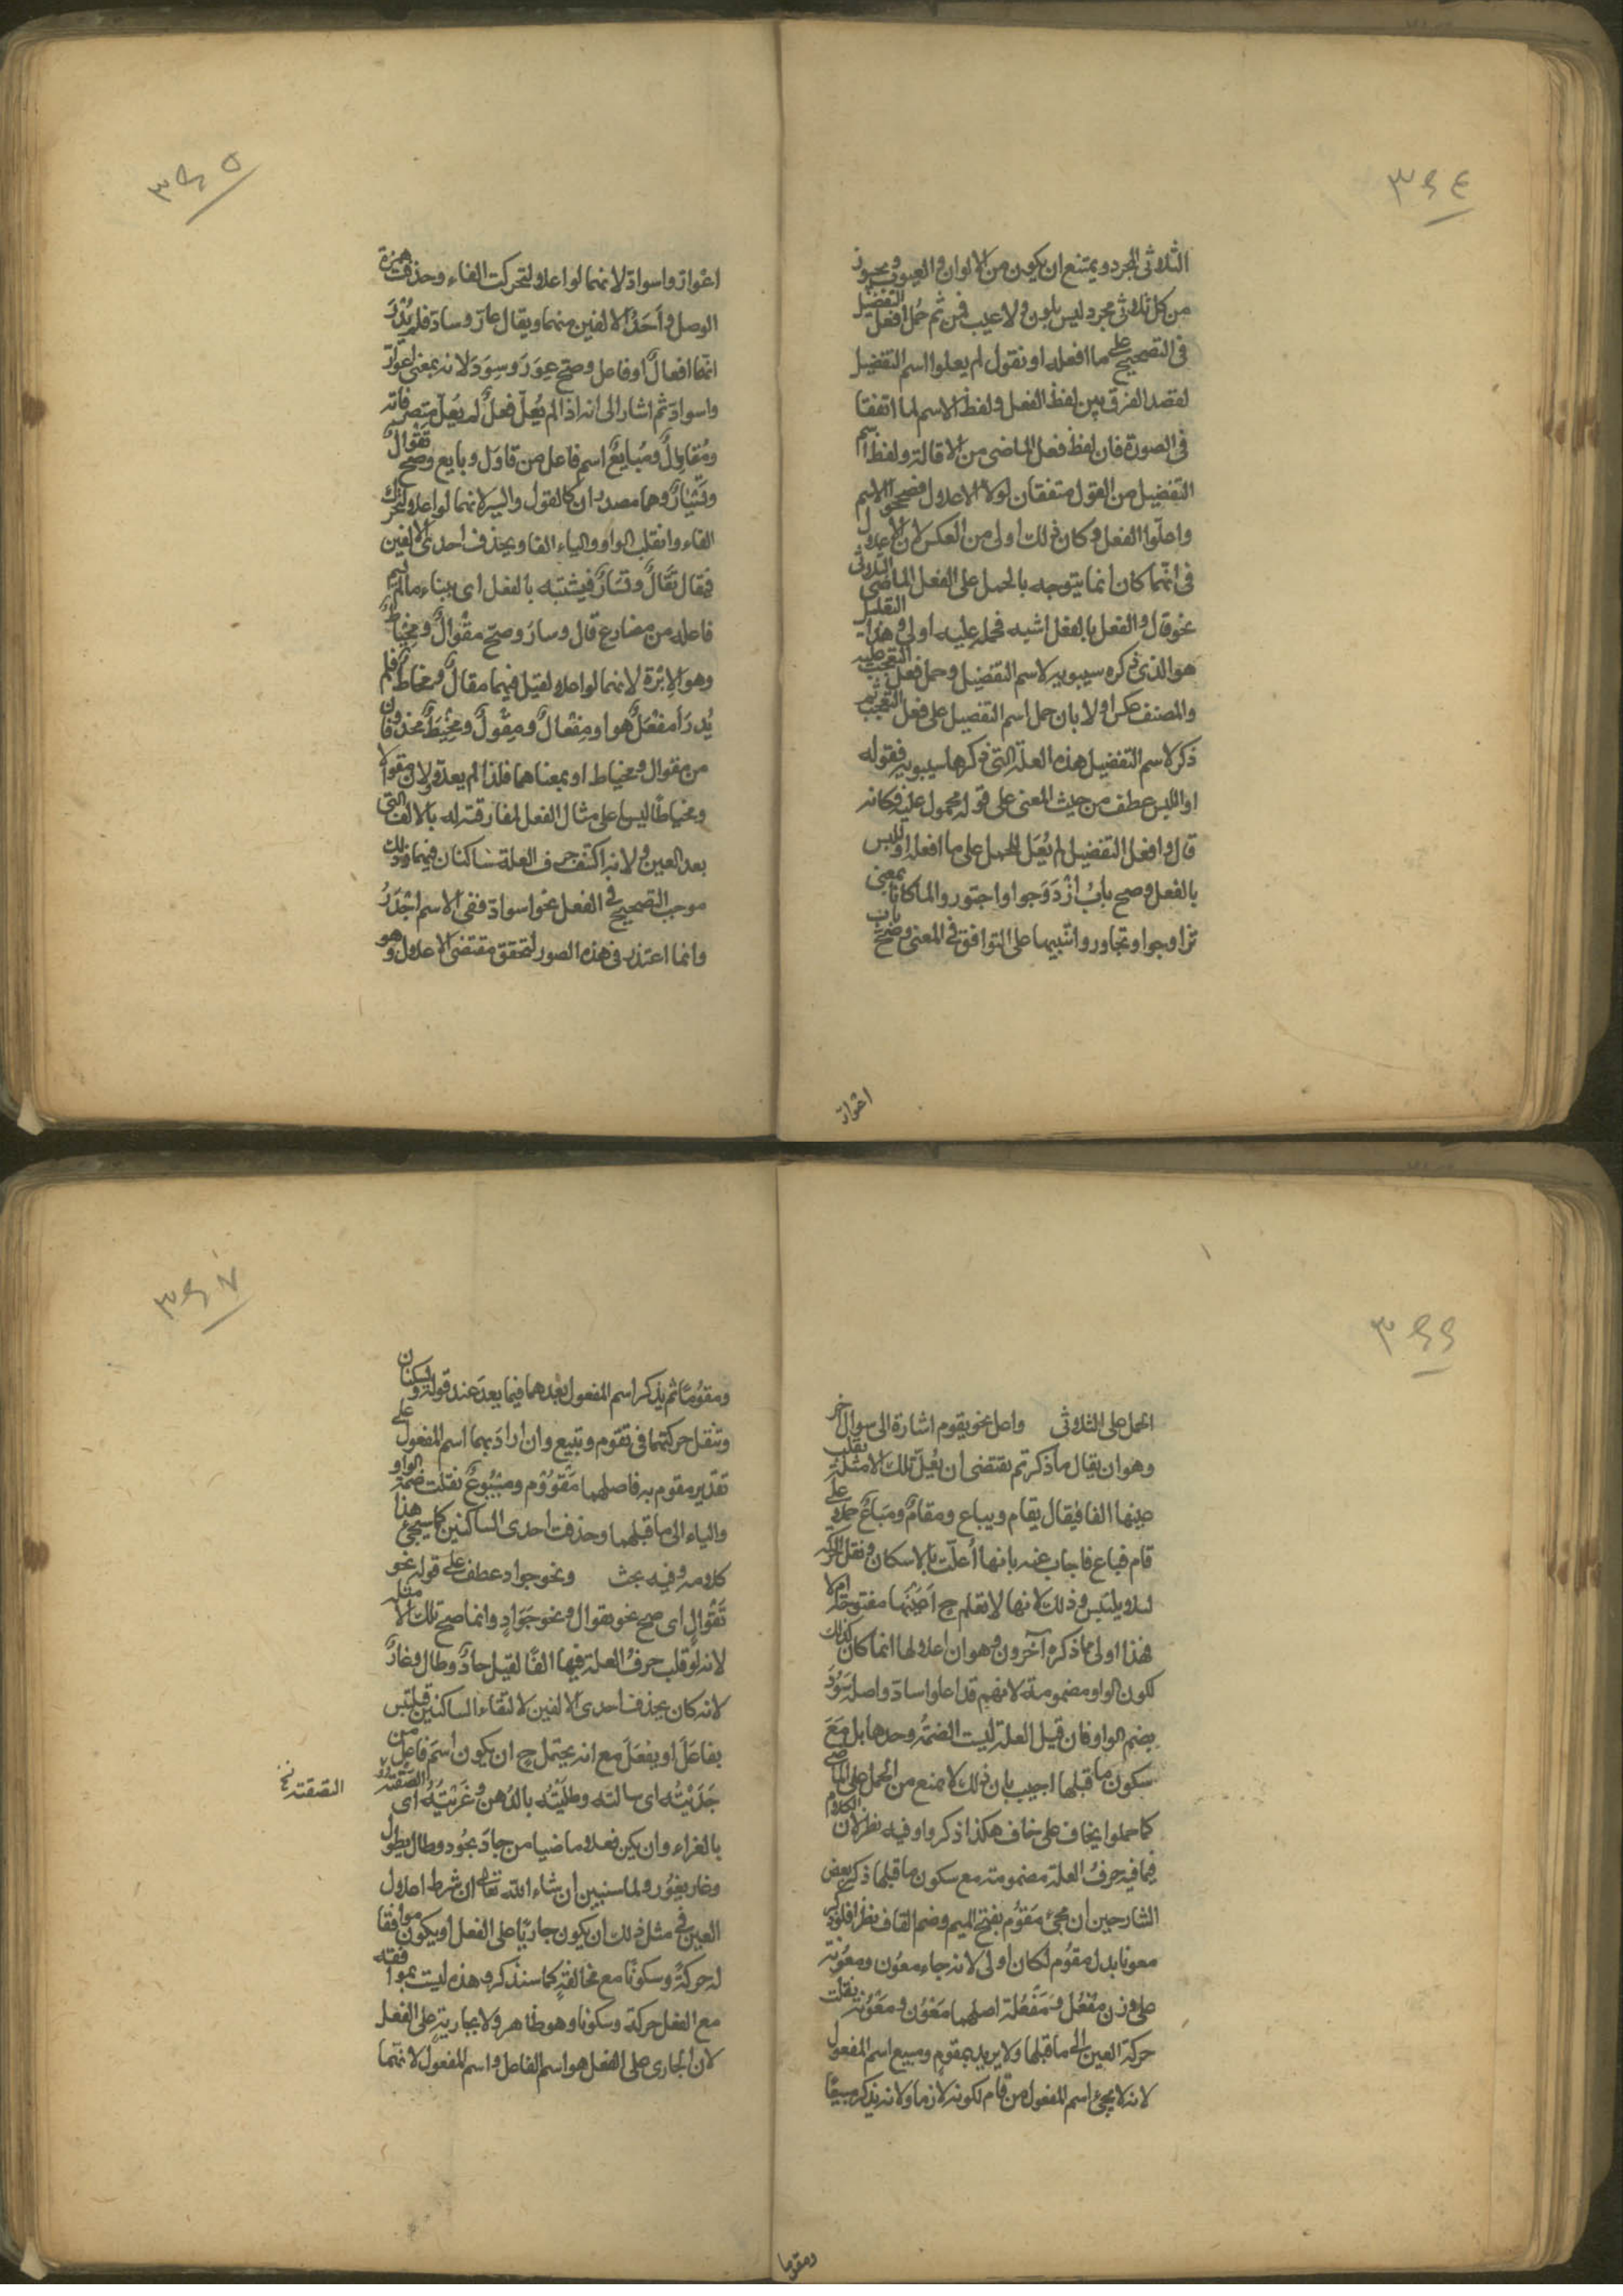 ٣٤٤
الثلاثى المجرد ويمتنع ان يكون من الالوان والعيوب ويجوز
من كل ثلاثى مجرد ليس بلون ولا عيب فمن ثم حمل افعل التفضيل
فى التصحيح على ما افعله او نقول لم يعلوا اسم التفضيل
لقصد الفرق بين لفظ الفعل ولفظ الاسم لما اتفقا
فى الصورة فان لفظ فعل الماضى من الاقالة ولفظ اسم
التفضيل من القول متفقان لولا الاعلال فصححوا الاسم
واعلّوا الفعل وكان ذلك اولى من العكس لان الاعلال
فى انهما كان انما يتوجه بالحمل على الفعل الماضى الثلاثى
نحو قال والفعل بالفعل اشبه فحمله عليه اولى وهذا التعليل
هو الذى ذكره سيبويه لاسم التفضيل وحمل فعل التعجب عليه
والمصنف عكس اولا بان حمل اسم التفضيل على فعل التعجب ثم
ذكر لاسم التفضيل هذه العلة التى ذكرها سيبويه فقوله
او اللبس عطف من حيث المعنى على قوله محمول عليه فكانه
قال وافعل التفضيل لم يُعَل للحمل على ما افعله او للبس
بالفعل وصح بابُ ازْدَوَجوا واجتوروا لما كانا بمعنى
تزاوجوا وتجاوروا تنبيها على التوافق فى المعنى وصح باب
اعوارّ
٣٤٥
اعْوارّ واسوادّ لانهما لو اعلا لتحركت الفاء وحذفت همزة
الوصل واَحَدُ الالفين منهما ويقال عارّ وسادّ فلم يُدْرَ
انهما افعالّ او فاعل وصح عِوَرَ وسِوَدَ لانه بمعنى اعوارّ
واسوادّ ثم اشار الى انه اذا لم يُعِلّ فعلٌ لم يُعِلّ متصرفاته
ومُقاوِلٌ ومُبايِعٌ اسم فاعل من قاوَل وبايع وصح تَقْوالٌ
وتَسْيارٌ وهما مصدران كالقول والسير لانهما لو اعلا لتحرك
الفاء وانقلب الواو والياء الفا ويحذف احدى الالفين
فيقال تَقَالٌ وتَسَارٌ فيشتبه بالفعل اى ببناء ما لم يسم
فاعله من مضارع قال وسار وصحّ مِقْوالٌ ومِخْياطٌ
وهو الابرة لانهما لو اعلا لقيل فيهما مقالٌ ومخاطٌ فلم
يُدرَ أمفعَلٌ هو او مِفْعالٌ ومِقْوَلٌ ومِخْيَطٌ محذوفان
من مقوال ومخياط او بمعناهما فلذا لم يعلا ولان مقوالا
ومخياطا ليسا على مثال الفعل لمفارقته له بالالف التى
بعد العين ولانه اكتنف حرف العلة ساكنان فيهما وذلك
موجب التصحيح فى الفعل نحو اسوادّ ففى الاسم اجْدَرُ
وانما اعتذر فى هذه الصور لتحقق مقتضى الاعلال وهو
٣٤٦
الحمل على الثلاثى واصل نحو يقوم اشارة الى سوال آخر
وهو ان يقال ما ذكرتم يقتضى ان يُعَلّ تلك الامثلة بقلب
عينها الفا فيقال يقام ويباع ومقامٌ ومَباعٌ حملا على
قام فباع فاجاب عنه بانها أُعلّت بالاسكان ونقل الحركة
لئلا يلتبس وذلك لانها لا تعلم ح أعَينُها مفتوحة ام لا
فهذا اولى مما ذكره آخرون وهو ان اعلالها انما كان كذلك
لكون الواو مضمومة لانهم قد اعلوا ساد واصله سَوُدَ
بضم الواو فان قيل العلة ليست الضمةُ وحدها بل مَعَ
سكون ما قبلها اجيب بان ذلك لا يمنع من الحمل على الماضى
كما حملوا يخاف على خاف هكذا ذكروا وفيه نظر لان الكلام
فيما فيه حرفُ العلة مضمومة مع سكون ما قبلها ذكر بعض
الشارحين ان مجئ مَقوُم بفتح الميم وضم القاف نظرا فلو ذكر
معونا بدل مقوُم لكان اولى لانه جاء معوُن ومعوُنة
على وزن مَفْعُل ومَفْعُلة اصلهما مَعْوُن ومَعْوُنة نقلت
حركة العين الى ما قبلها ولا يريد بمقوم ومبيع اسم المفعول
لانه لا يجئ اسم المفعول من قام لكونه لازما ولانه يذكر مبيعًا
ومقوما
٣٤٧
ومقوُمًا ثم يذكر اسم المفعول بعدهما فيما بعد عند قوله ويسكنان
وتنقل حركتهما فى تقوم وتبيع وان اراد بهما اسم المفعول على
تقدير مقوم به فاصلهما مَقْوُوْم ومَبْيُوعٌ نقلت ضمة الواو
والياء الى ما قبلهما وحذفت احدى الساكنين كما سيجئ هذا
كلامه وفيه بحث ونحو جواد عطف على قوله نحو
تَقْوالٍ اى صح نحو تقوال ونحو جَوَادٍ وانما صح تلك الامثلة
لانه لو قلب حرفُ العلة فيها الفًا لقيل جادٌ وطال وغارٌ
لانه كان يحذف احدى الالفين لالتقاء الساكنين فيلتبس
بفاعَلَ او بفَعَلَ مع انه يحتمل ح ان يكون اسمَ فاعل من
جَدَيْتُه اى سالته وطلَيْتُه بالدُهن وغَرَيْتُه اى الصقته
التصقته نخ
بالغراء وان يكون فعلا ماضيا من جادَ يجُود وطال يطول
وغار يغوُر ولما سنبين ان شاء الله تعالى ان شرط اعلال
العين فى مثل ذلك ان يكون جاريًا على الفعل او يكون موافقا
له حركةً وسكونًا مع مخالفةٍ كما سنذكره وهذه ليست بموافقة
مع الفعل حركة وسكونا وهو ظاهر ولا بجارية على الفعل
لان الجارى على الفعل هو اسم الفاعل واسم المفعول لانهما